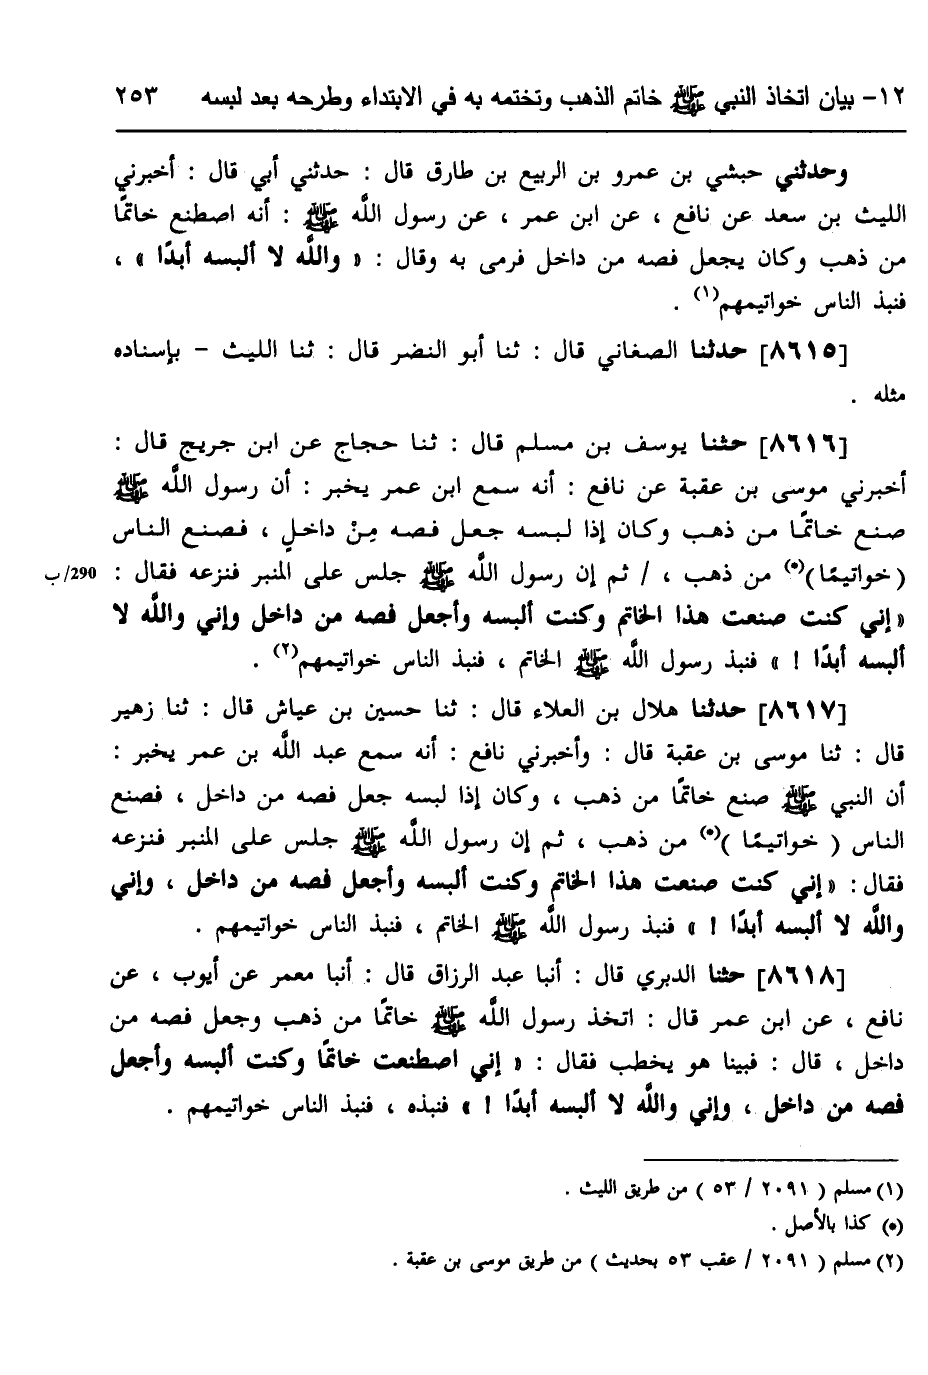 ١٢- بيان اتخاذ النبي ﷺ خاتم الذهب وتختمه به في الابتداء وطرحه بعد لبسه ٢٥٣
وحدثني حبشي بن عمرو بن الربيع بن طارق قال : حدثني أبي قال : أخبرني
الليث بن سعد عن نافع ، عن ابن عمر ، عن رسول اللَّه ﷺ : أنه اصطنع خاتمًا
من ذهب وكان يجعل فصه من داخل فرمى به وقال : « واللَّه لا ألبسه أبدًا » ،
فنبذ الناس خواتيمهم(١) .
[٨٦١٥] حدثنا الصغاني قال : ثنا أبو النضر قال : ثنا الليث - بإسناده
مثله .
[٨٦١٦] حثنا يوسف بن مسلم قال : ثنا حجاج عن ابن جريج قال :
أخبرني موسى بن عقبة عن نافع : أنه سمع ابن عمر يخبر : أن رسول اللَّه ﷺ
صنع خاتمًا من ذهب وكان إذا لبسه جعل فصه مِنْ داخلٍ ، فصنع الناس
( خواتيمًا )(*) من ذهب ، / ثم إن رسول اللَّه ﷺ جلس على المنبر فنزعه فقال : 290/ب
« إني كنت صنعت هذا الخاتم وكنت ألبسه وأجعل فصه من داخل وإني واللَّه لا
ألبسه أبدًا ! » فنبذ رسول اللَّه ﷺ الخاتم ، فنبذ الناس خواتيمهم(٢) .
[٨٦١٧] حدثنا هلال بن العلاء قال : ثنا حسين بن عياش قال : ثنا زهير
قال : ثنا موسى بن عقبة قال : وأخبرني نافع : أنه سمع عبد اللَّه بن عمر يخبر :
أن النبي ﷺ صنع خاتمًا من ذهب ، وكان إذا لبسه جعل فصه من داخل ، فصنع
الناس ( خواتيمًا )(*) من ذهب ، ثم إن رسول اللَّه ﷺ جلس على المنبر فنزعه
فقال : « إني كنت صنعت هذا الخاتم وكنت ألبسه وأجعل فصه من داخل ، وإني
واللَّه لا ألبسه أبدًا ! » فنبذ رسول اللَّه ﷺ الخاتم ، فنبذ الناس خواتيمهم .
[٨٦١٨] حثنا الدبري قال : أنبا عبد الرزاق قال : أنبا معمر عن أيوب ، عن
نافع ، عن ابن عمر قال : اتخذ رسول اللَّه ﷺ خاتمًا من ذهب وجعل فصه من
داخل ، قال : فبينا هو يخطب فقال : « إني اصطنعت خاتمًا وكنت ألبسه وأجعل
فصه من داخل ، وإني واللَّه لا ألبسه أبدًا ! » فنبذه ، فنبذ الناس خواتيمهم .
(١) مسلم ( ٢٠٩١ / ٥٣ ) من طريق الليث .
(*) كذا بالأصل .
(٢) مسلم ( ٢٠٩١ / عقب ٥٣ بحديث ) من طريق موسى بن عقبة .